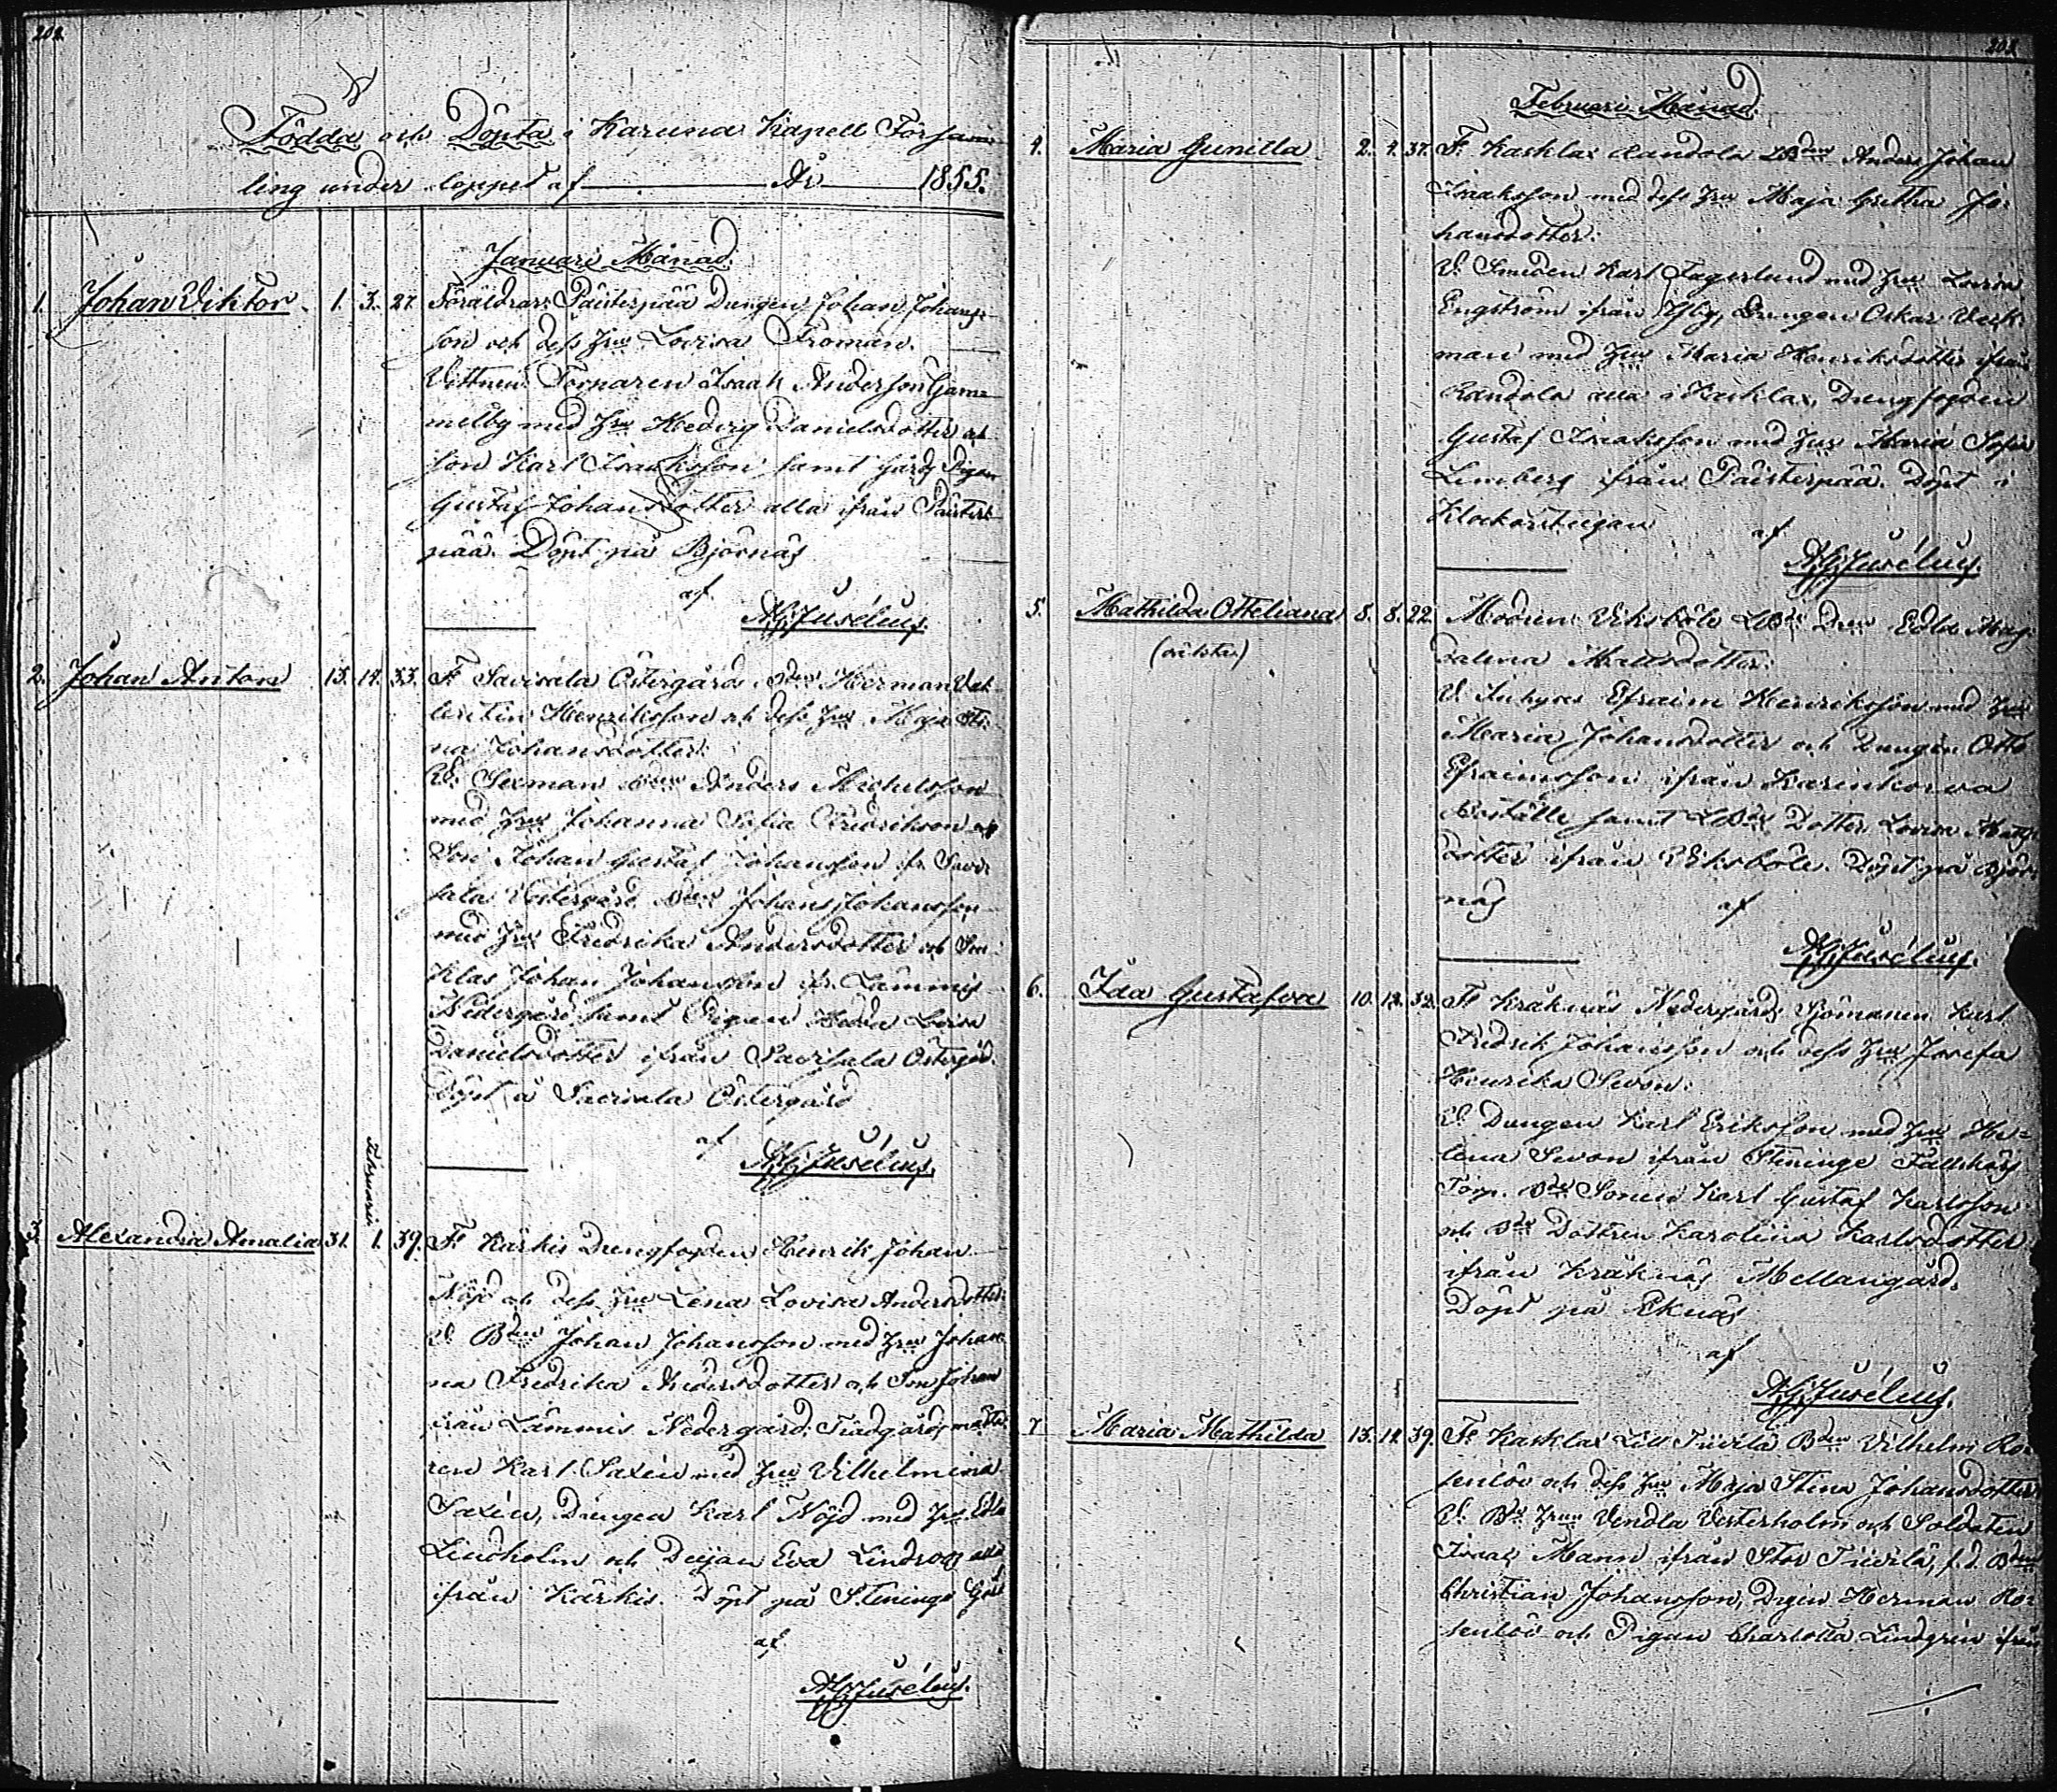 202
Födda och Döpta i Karuna Kapell Församling under loppet af År 1855.
Januari Månad.
1. Johan Viktor. 1. 3. 27. Föräldrar: Päisterpää Drängen Johan Johans-
son och dess Hru Lovisa Froman.
Vittnen: Tornaren Isaak Andersson Gam-
melby med Hru Hedvig Danielsdotter och
son Karl Isaaksson samt Gårds Pigan
Gustaf Johansdotter alla ifrån Päister-
pää. Döpt på Björnäs
af
Juselius.
2. Johan Anton 13. 14. 33. F: Savisala Östergårds Bden Herman Val-
lentin Henriksson och dess Hru Maja Sti-
na Johansdotter:
V: Sexman Bden Anders Michelsson
med Hru Johanna Sofia Fredrikson och
Son Johan Gustaf Johansson fr. Savi-
sala Nedergård, Bden Johan Johansson
med Hru Fredrika Andersdotter och Son
Klas Johan Johansson fr. Lämmis
Nedergård samt Pigan Hedda Lovisa
Danielsdotter ifrån Savisala Östergård.
Döpt å Savisala Östergård
af
Juselius.
Februarii
3. Alexandra Amalia 31. 1. 39. F: Kärkis Drengfogden Henrik Johan
Nöjd och dess Hru Lena Lovisa Andersdotter:
V: Bden Johan Johansson med Hru Johan-
na Fredrika Andersdotter och Son Johan
från Lämmis Nedergård, Trädgårds mästa-
ren Karl Saxén med Hru Vilhelmina
Saxén, Drängen Karl Nöjd med Hru Edla
Lindholm och Dejan Eva Lindroos alla
ifrån Kärkis. Döpt på Steninge Gård
af
Juselius.
202
Februari Månad.
4. Maria Gunilla 2. 4. 37. F: Kasklax Randola LBden Anders Johan
Isaaksson med dess Hru Maja Gretha Jo-
hansdotter:
V: Smeden Karl Fagerlund med Hru Lovisa
Engström ifrån Drängen Oskar Verk-
man med Hru Maria Henriksdotter ifrån
Randola alla i Kasklax, Drengfogden
Gustaf Isaaksson med Hru Maria Sofia
Limberg ifrån Päisterpää. Döpt i
Klockarstugan
af
Juselius.
5. Mathilda Otteliana 8. 8. 22. Modren: Viksböle LBds Dren Edla Mag-
(oäkta) dalena Mattsdotter:
V: Inhyses Efraim Henriksson med Hru
Maria Johansdotter och Drängen Otto
Efraimsson ifrån Karinkorva
Boställe samt LBds Dotter Lovisa Matts-
dotter ifrån Viksböle. Döpt på Björ-
näs af
Juselius.
6. Ida Gustafva 10. 12. 32. F: Kräknäs Nedergårds Sjömannen Karl
Fredrik Johansson och dess Hru Josefa
Henrika Sevon:
V: Drängen Karl Eriksson med Hru He-
lena Sevon ifrån Steninge
Torp. Bds Sonen Karl Gustaf Karlsson
och Bds Dottren Karolina Karlsdotter
ifrån Kräknäs Mellangård.
Döpt på Eknäs
af
Juselius.
7. Maria Mathilda 13. 14. 39. F: Kasklax Lill Tiivilä Bden Vilhelm Ro-
senlöv och dess Hru Maja Stina Johansdotter
V: Bds Hrun Vendla Vesterholm och Soldaten
Isaac Mann ifrån Stor Tiivilä, f.d. Bden
Christian Johansson, Drgen Herman Ro-
senlöv och Pigan Charlotta Lindgrén ifrån